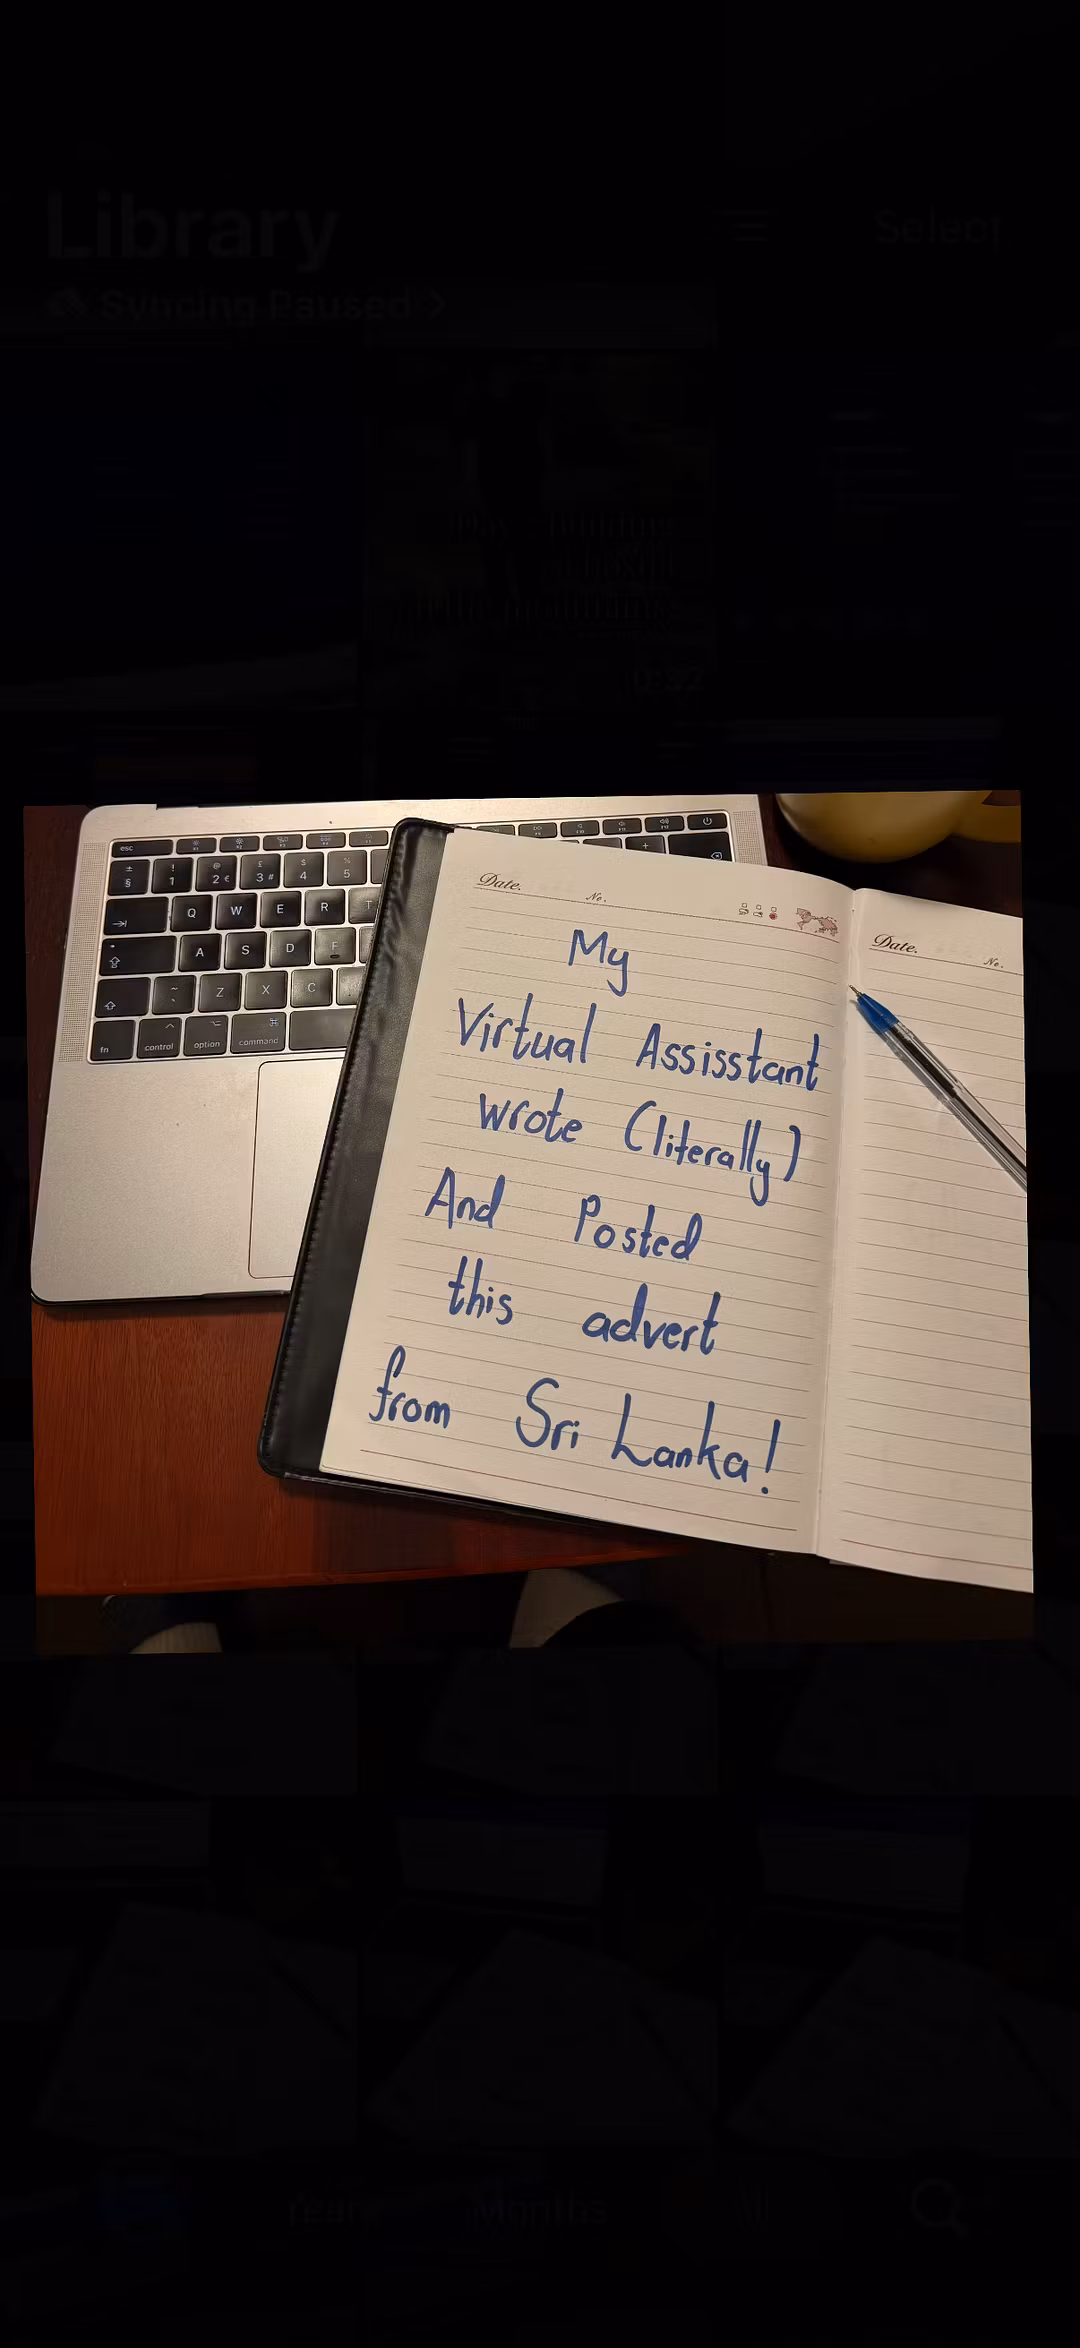 Library
Select
Syncing Paused >
0:32
esc
§ 1 2 € 3 # 4 5
Q W E R T
A S D F
~ ` Z X C
fn control option command
Date. No.
My
Virtual Assisstant
wrote (literally)
And Posted
this advert
from Sri Lanka!
Date. No.
Months
All